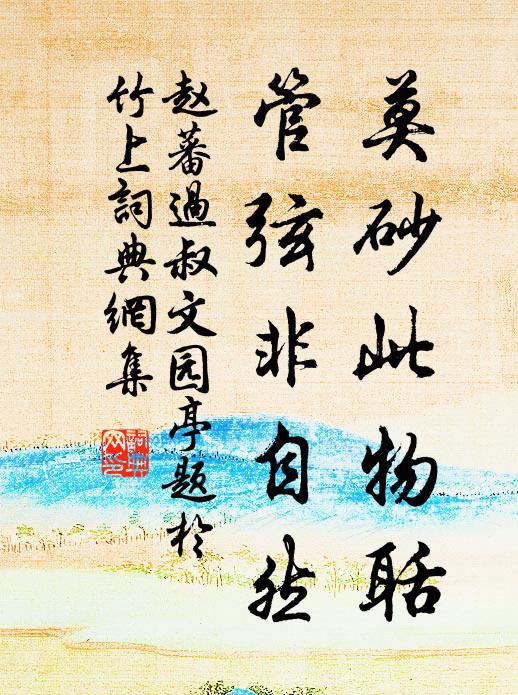 莫砂此物聒
管弦非自然
赵蕃過叔文园亭題於
竹上詞典網集